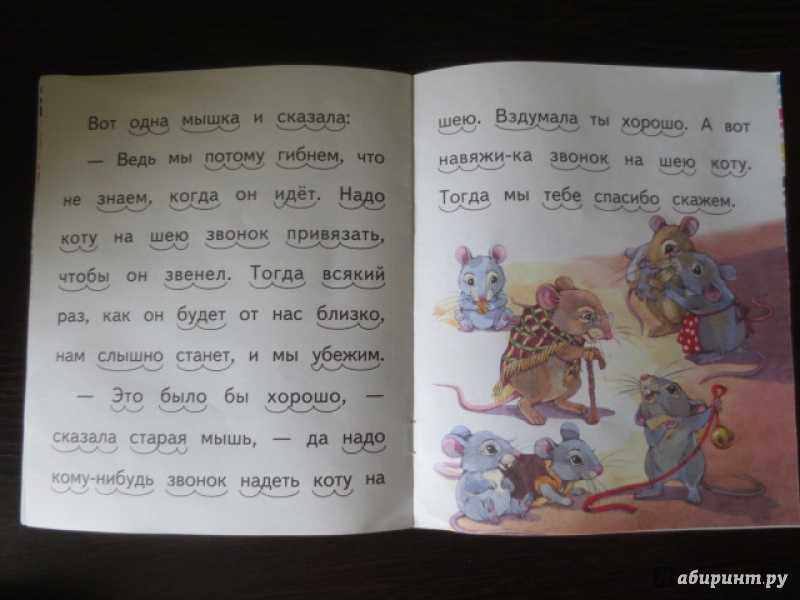 Вот одна мышка и сказала:
— Ведь мы потому гибнем, что
не знаем, когда он идёт. Надо
коту на шею звонок привязать,
чтобы он звенел. Тогда всякий
раз, как он будет от нас близко,
нам слышно станет, и мы убежим.
— Это было бы хорошо, —
сказала старая мышь, — да надо
кому-нибудь звонок надеть коту на
шею. Вздумала ты хорошо. А вот
навяжи-ка звонок на шею коту.
Тогда мы тебе спасибо скажем.
Лабиринт.ру